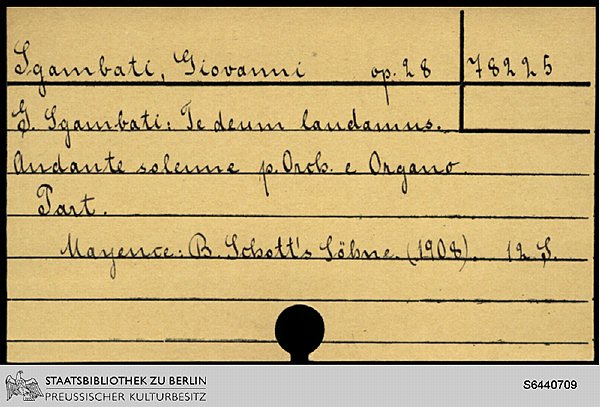 Sgambati, Giovanni op. 28 78225
G. Sgambati: Te deum laudamus.
Andante solenne p. Orch. e Organo.
Part.
Mayence: B. Schott's Söhne. (1908). 12 S.
STAATSBIBLIOTHEK ZU BERLIN
PREUSSISCHER KULTURBESITZ
S6440709